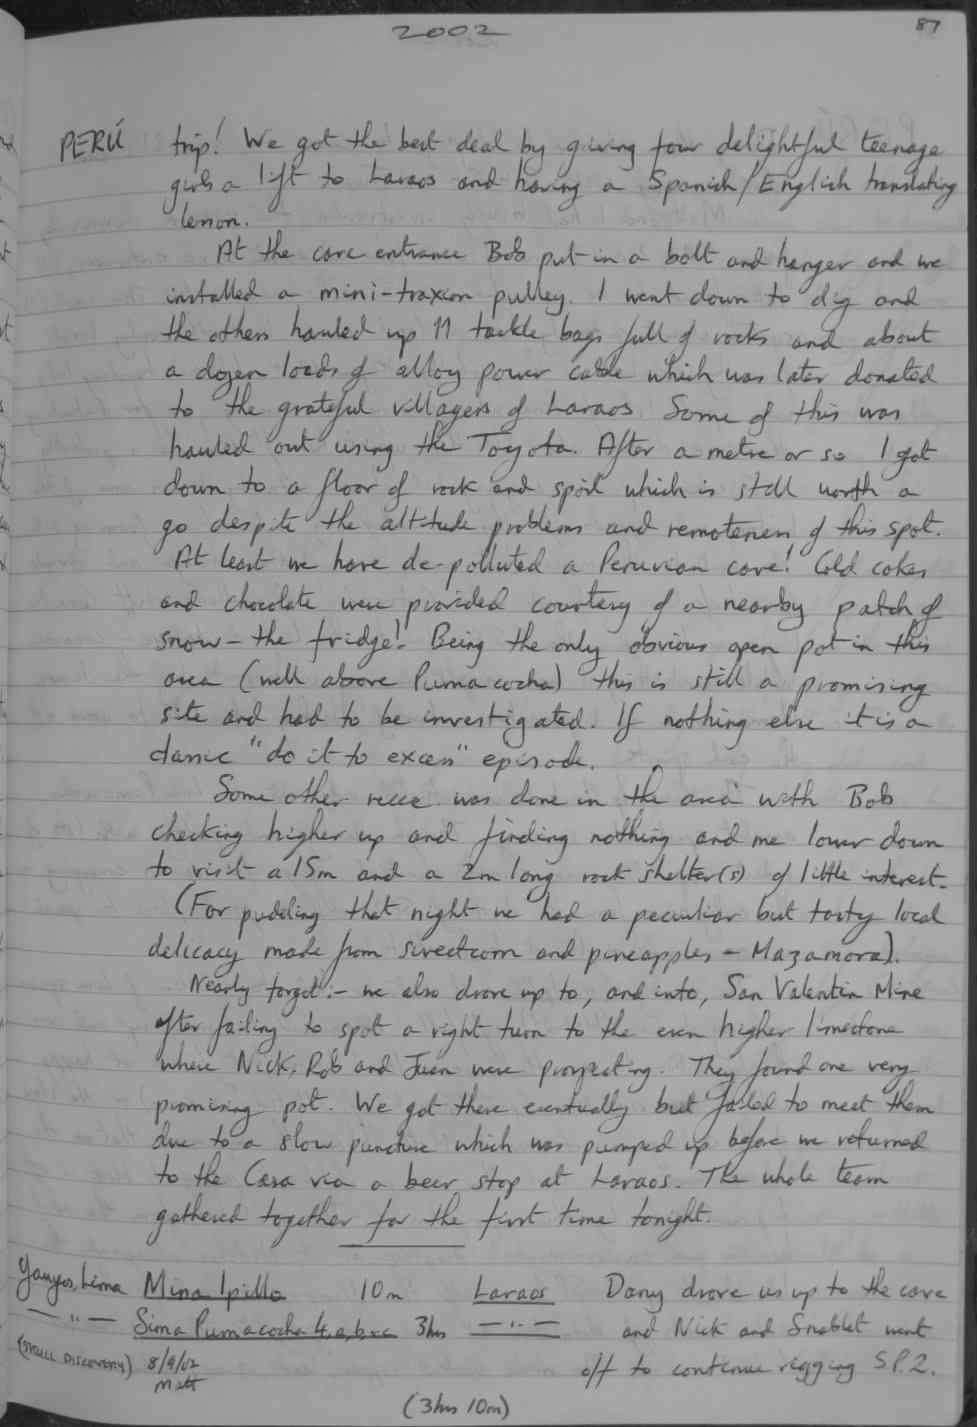 2002
87
PERÚ trip! We got the best deal by giving four delightful teenage
girls a lift to Laraos and having a Spanish/English translating
lesson.
At the cave entrance Bob put in a bolt and hanger and we
installed a mini-traxion pulley. I went down to dig and
the others hauled up 11 tackle bags full of rocks and about
a dozen loads of alloy power cable which was later donated
to the grateful villagers of Laraos. Some of this was
hauled out using the Toyota. After a metre or so I got
down to a floor of rock and spoil which is still worth a
go despite the altitude problems and remoteness of this spot.
At least we have de-polluted a Peruvian cave! Cold cokes
and chocolate were provided courtesy of a nearby patch of
snow - the fridge! Being the only obvious open pot in this
area (well above Pumacocha) this is still a promising
site and had to be investigated. If nothing else it is a
classic "do it to excess" episode.
Some other recce was done in the area with Bob
checking higher up and finding nothing and me lower down
to visit a 15m and a 2m long rock shelter(s) of little interest.
(For pudding that night we had a peculiar but tasty local
delicacy made from sweetcorn and pineapples - Mazamora).
Nearly forgot:- we also drove up to, and into, San Valentin Mine
after failing to spot a right turn to the even higher limestone
where Nick, Rob and Juan were prospecting. They found one very
promising pot. We got there eventually but failed to meet them
due to a slow puncture which was pumped up before we returned
to the Casa via a beer stop at Laraos. The whole team
gathered together for the first time tonight.
Yauyos, Lima Mina Ipillo 10m Laraos Dany drove us up to the cave
— " — Sima Pumacocha 4, a, b & c 3hrs — " — and Nick and Snablet went
(SMALL DISCOVERY) 8/9/02 off to continue rigging S.P.2.
Matt
(3hrs 10m)